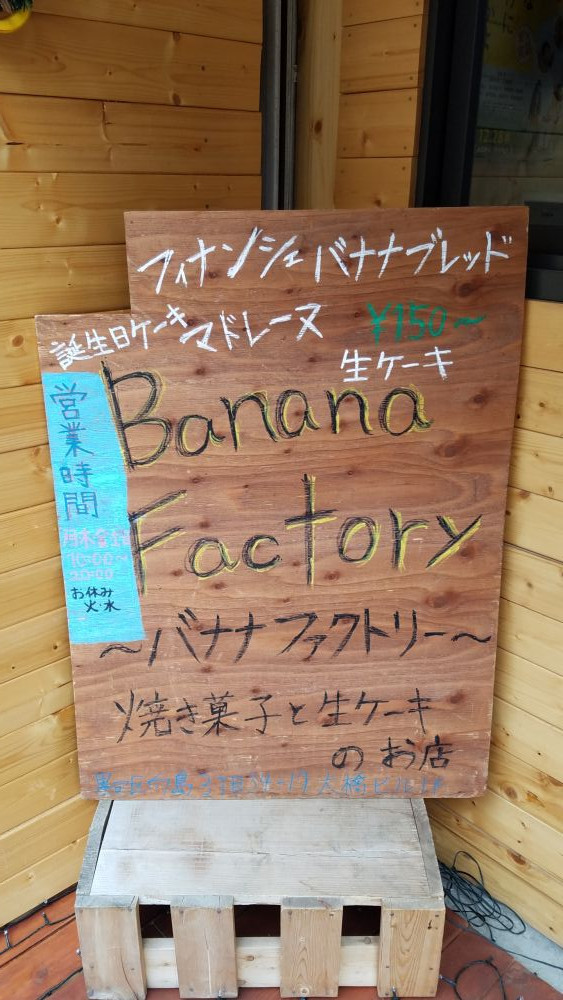 フィナンシェバナナブレッド
誕生日ケーキ マドレーヌ ¥150〜
生ケーキ
Banana
Factory
〜バナナファクトリー〜
焼き菓子と生ケーキ
のお店
営業時間
月木金土日
10:00〜
20:00
お休み
火・水
3丁目 大橋ビル1F